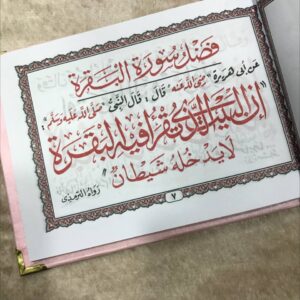 فضل سورة البقرة
عن أبي هريرة رضي الله عنه قال: قال النبي صلى الله عليه وسلم:
"إن البيت الذي تقرأ فيه البقرة
لا يدخله شيطان"
رواه الترمذي
٧